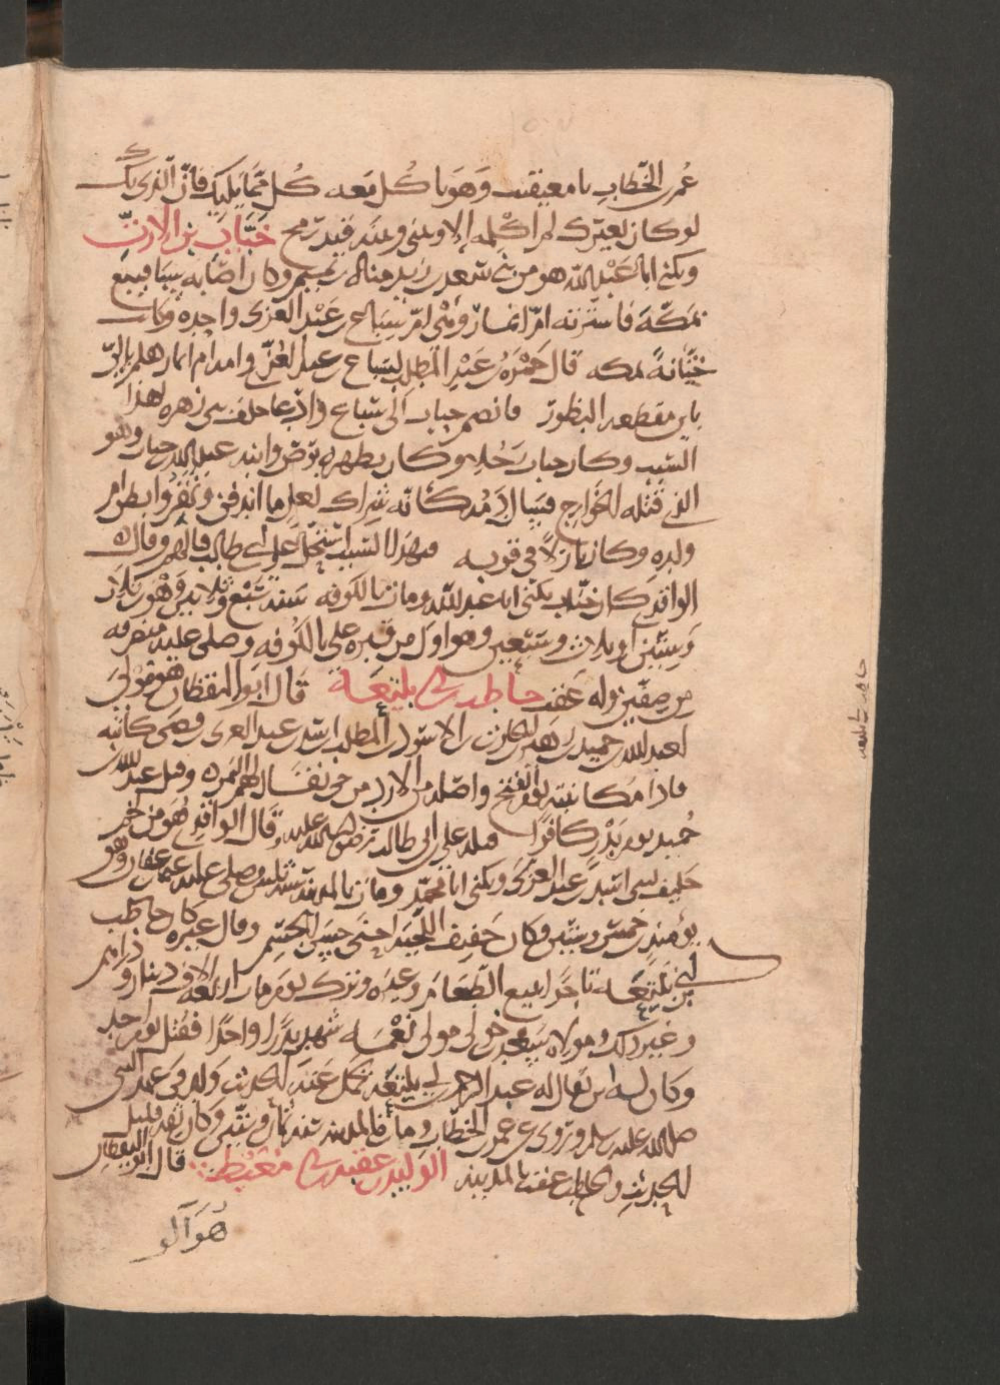 عمر بن الخطاب يا معيقيب وهو يأكل معه كل مما يليك فان الذي بك
لو كان بغيرك لم اكلمه إلا وبيني وبينه قيد رمح خباب بن الارت
ويكنى ابا عبد الله هو من بني سعد بن زيد مناة بن تميم وكان اصابه سبيا فبيع
بمكة فاشترته ام انمار وهي ام سباع بن عبد العزى واحده وكانت
ختانة بمكه قال حمزة بن عبد المطلب لسباع بن عبد العزى وامه ام انمار هلم إلي
يا بن مقطعه البظور فانضم خباب الى سباع وادعا حلف بني زهره لهذا
السبب وكان خباب رجلا وكان بظهره برص وابنه عبد الله بن خباب وهو
الذي قتله الخوارج فسال دمه كانه شراك نعل ما ابدقر وبقروا بطن ام
ولده وكان نازلا في قريه فبهذا السبب استحل علي بن ابي طالب قتالهم وقال
الواقدي كان خباب يكنى ابا عبد الله ومات بالكوفه سنة سبع وثلاثين وهو بن ثلاث
وستين او ثلاث وسبعين وهو اول من قبره علي بالكوفه وصلى عليه منصرفه
من صفين وله عقب حاطب بن ابي بلتعة قال ابو اليقظان هو مولى
لعبد الله بن حميد بن زهير بن الحارث بن الاسود بن المطلب بن اسد بن عبد العزى وهي كاتبه
فادا مكاتبته يوم الفتح واصله من الازد من حي يقال لهم النمره وقتل عبد الله بن
حميد يوم بدر كافرا قتله علي بن ابي طالب رضي الله عليه وقال الواقدي هو من لخم
حليف لبني اسد بن عبد العزى ويكنى ابا محمد ومات بالمدينة سنة ثلثين وصلى عليه عثمان بن عفان وهو
يومئذ بن خمس وستين وكان خفيف اللحية احنى حسن الجسم وقال غيره كان حاطب
بن ابي بلتعة تاجرا يبيع الطعام وغيره وترك يوم مات اربعة الاف دينار ودراهم
وغير ذلك ومولاه سعد بن خولى مولى نعمه شهد بدرا واحدا فقتل يوم احد
وكان له ابن يقال له عبد الرحمن بن ابي بلتعة تحمل عنه الحديث ولد في عهد النبي
صلى الله عليه وسلم وروى عن عمر بن الخطاب ومات بالمدينة سنة ثمان وستين وكان ثقه قليل
الحديث ولحاطب عقب بالمدينه الوليد بن عقبة بن ابي معيط قال ابو اليقظان
هو الو
حاطب بن ابي بلتعه